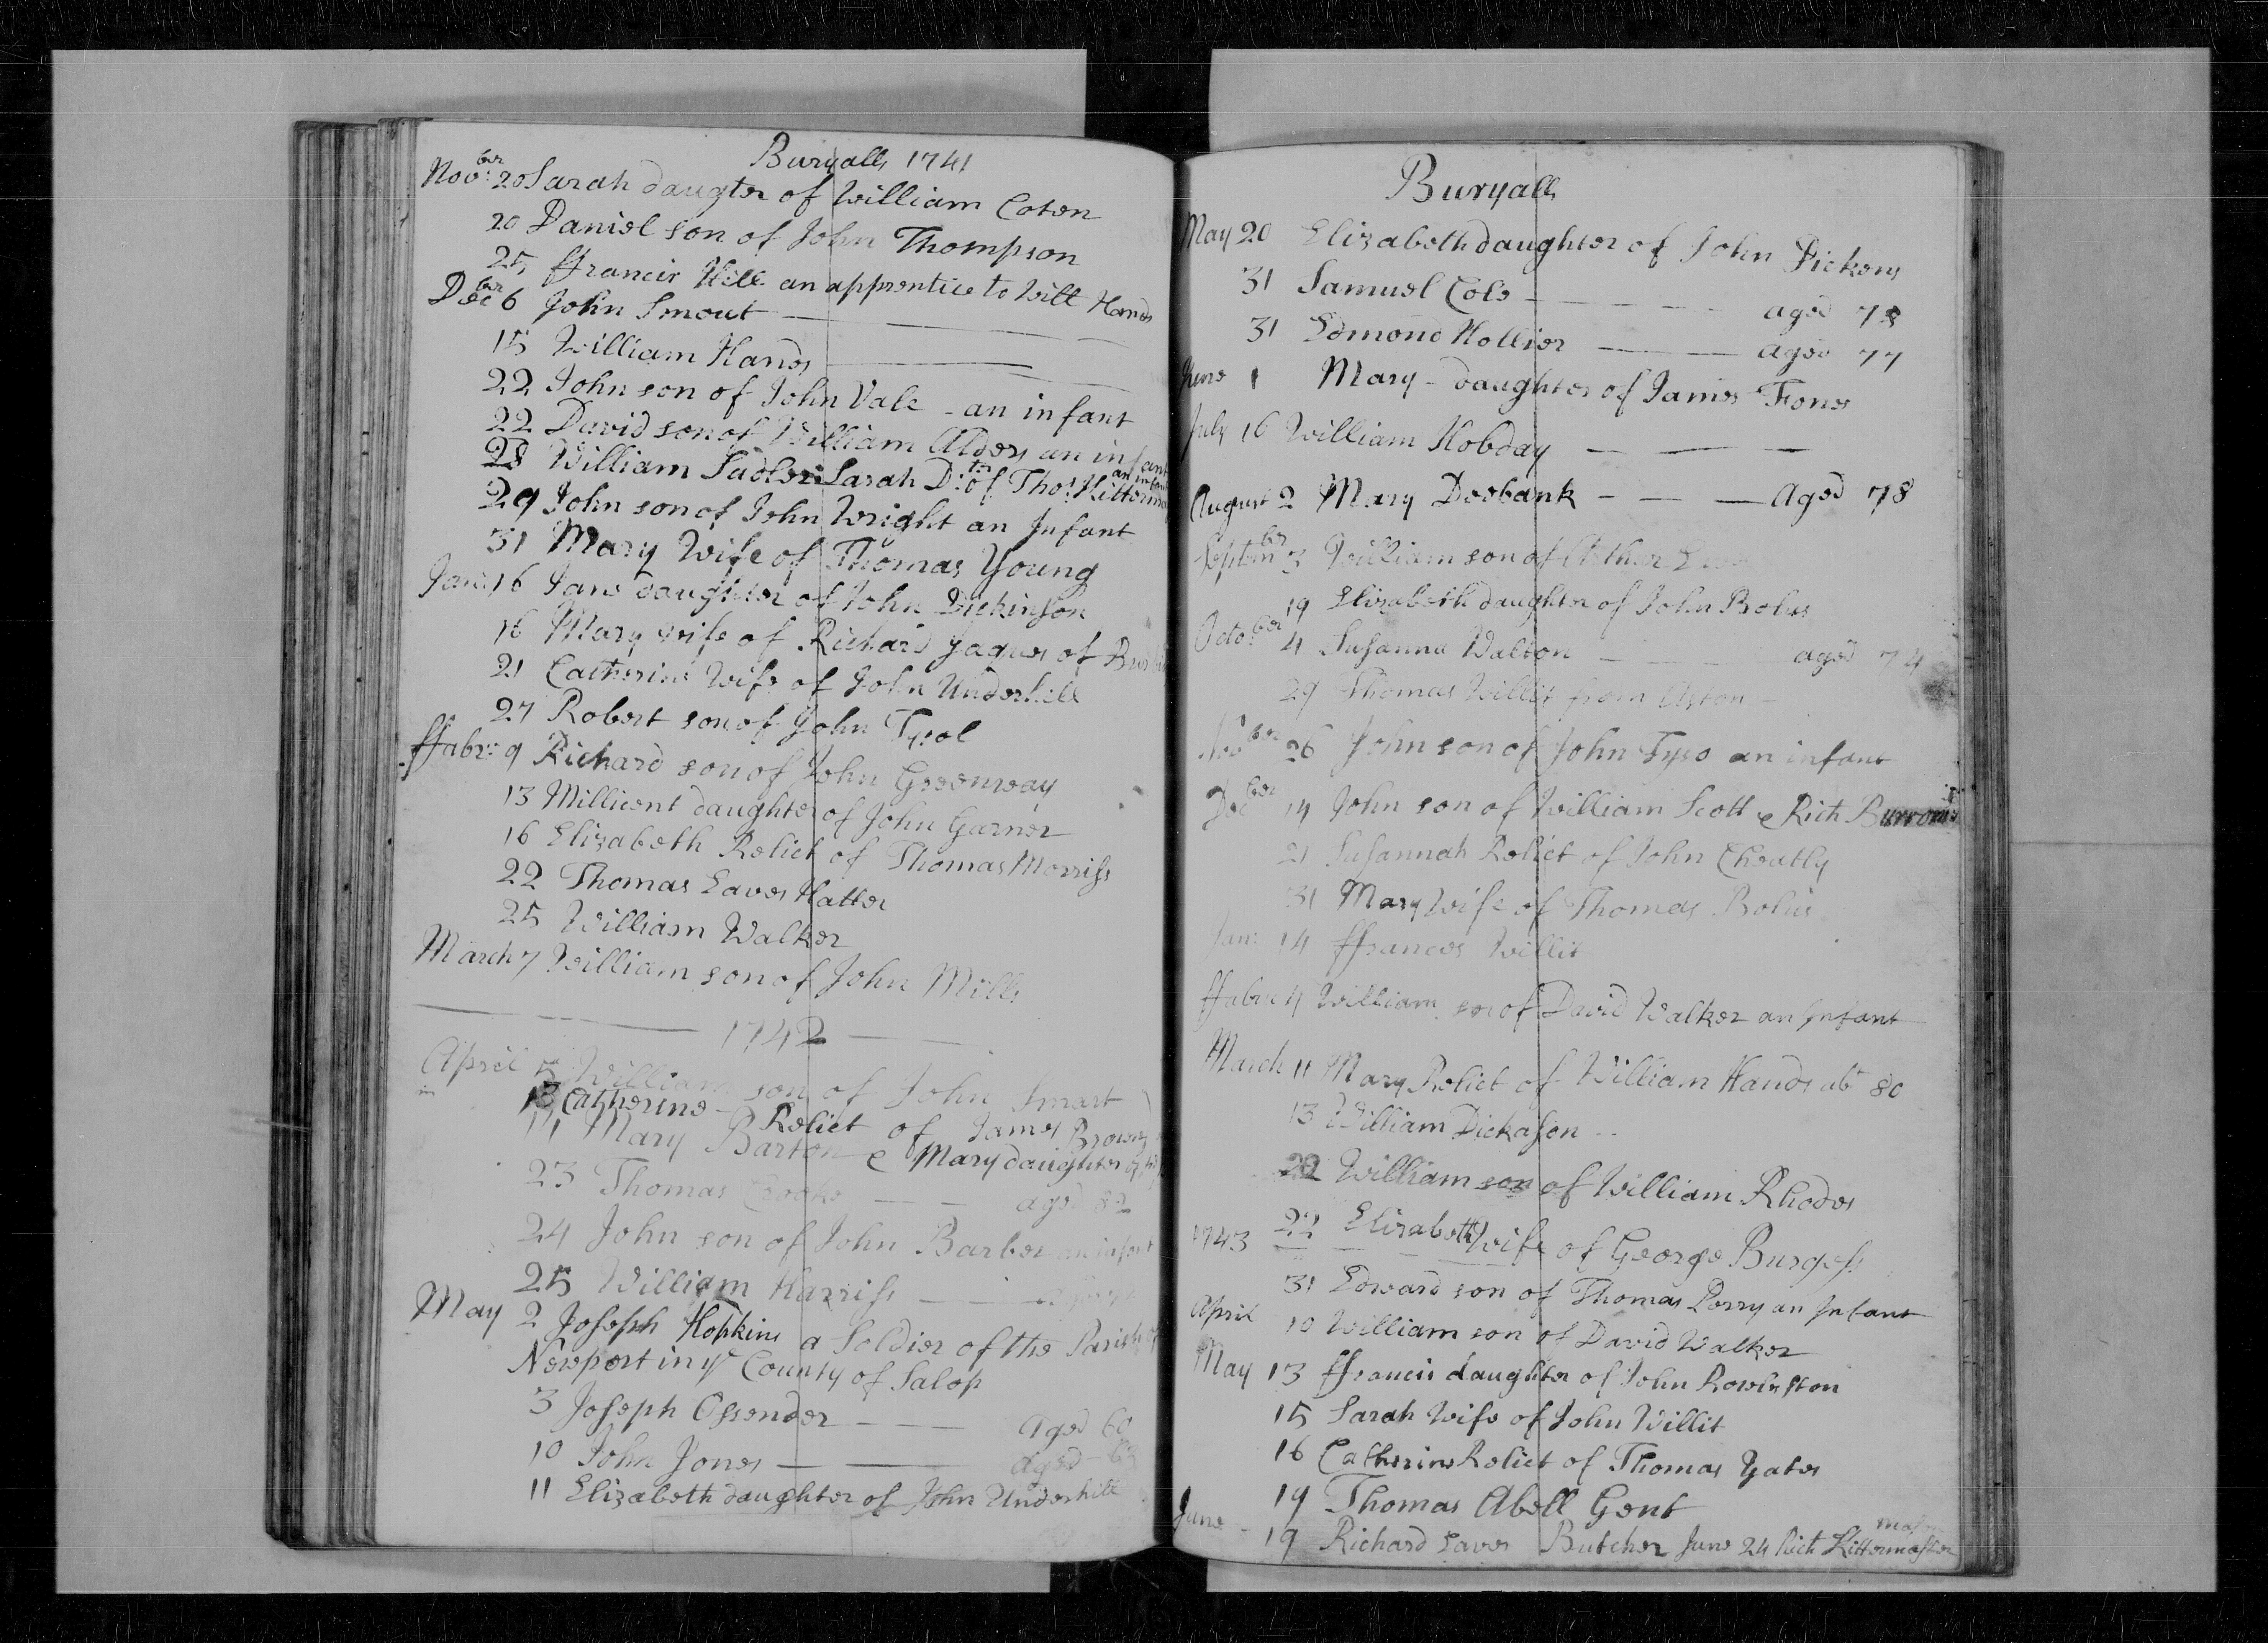 Buryalls 1741
Nov:ber 20 Sarah daugter of William Coten
20 Daniel son of John Thompson
25 ffrancis Hill an apprentice to Will Hands
Decber 6 John Smout
15 William Hands
22 John son of John Vale - an infant
22 David son of William Alders an infant
28 William Sadler Sarah D:tr of Thos:
29 John son of John Wright an Infant
31 Mary Wife of Thomas Young
Jan: 16 Jane daughter of John Dickinson
16 Mary wife of Richard Jaques of
21 Catherine Wife of John Underhill
27 Robert son of John
ffebr: 9 Richard son of John Greenway
13 Millicent daughter of John Garner
16 Elizabeth Relict of Thomas Morriss
22 Thomas Eaves Hatter
25 William Walker
March 7 William son of John Mills
1742
April 5 William son of John Smart
13 Catherine Relict of James Brown
Mary Barton & Mary daughter of
23 Thomas Cooke aged 82
24 John son of John Barber an infant
25 William Harriss
May 2 Joseph Hopkins a Soldier of the Parish of
Newport in ye County of Salop
3 Joseph Ossender aged 60
10 John Jones aged 63
11 Elizabeth daughter of John Underhill
Buryalls
May 20 Elizabeth daughter of John Pickens
31 Samuel Cole aged 78
31 Edmond Hollier aged 77
June 1 Mary daughter of James
July 16 William Hobday
August 2 Mary Deebank aged 78
September 3 William son of Arthur
19 Elizabeth daughter of John Bolus
Octo:ber 4 Susanna Walton aged 74
29 Thomas Willit from Aston
Novber 26 John son of John Tyso an infant
Decber 14 John son of William Scott & Rich
21 Susannah Relict of John Cheatly
31 Mary Wife of Thomas Bolus
Jan: 14 ffrances Willit
ffebr: 4 William son of David Walker an Infant
March 11 Mary Relict of William Hands abt 80
13 William Dickason
20 William son of William Rhodes
1743 22 Elizabeth Wife of George Burgess
31 Edward son of Thomas Perry an Infant
April 10 William son of David Walker
May 13 ffrancis daughter of John Rowlinston
15 Sarah Wife of John Willit
16 Catherine Relict of Thomas Yates
19 Thomas Abell Gent
June 19 Richard Eaves Butcher June 24 Rich Kittermaster